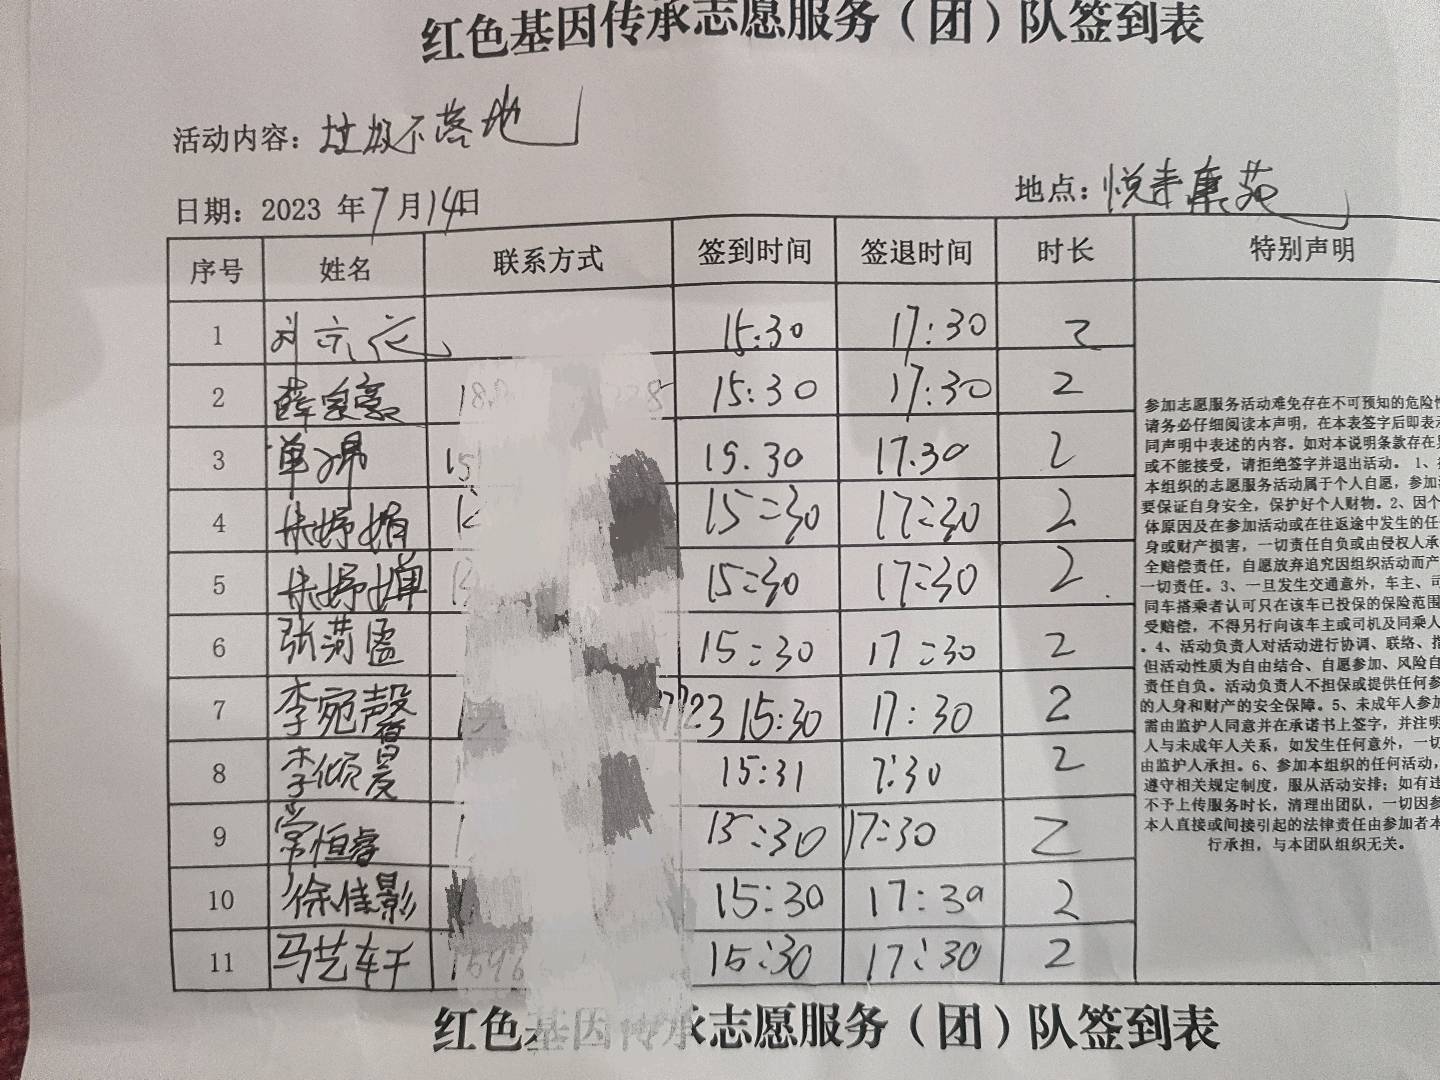 红色基因传承志愿服务（团）队签到表
活动内容：垃圾不落地
日期：2023 年7月14日 地点：悦来康苑
序号 姓名 联系方式 签到时间 签退时间 时长 特别声明
1 15:30 17:30 2
2 薛家豪 15:30 17:30 2
3 单 19.30 17.30 2
4 朱妤娟 15:30 17:30 2
5 朱妤婵 15:30 17:30 2
6 张满盈 15:30 17:30 2
7 李宛馨 23 15:30 17:30 2
8 李倾晨 15:31 7:30 2
9 常恒睿 15:30 17:30 2
10 徐佳影 15:30 17:30 2
11 马艺轩 1596 15:30 17:30 2
参加志愿服务活动难免存在不可预知的危险性
请务必仔细阅读本声明，在本表签字后即表示
同声明中表述的内容。如对本说明条款存在异
或不能接受，请拒绝签字并退出活动。 1、
本组织的志愿服务活动属于个人自愿，参加活
要保证自身安全，保护好个人财物。2、因个
体原因及在参加活动或在往返途中发生的任
身或财产损害，一切责任自负或由侵权人承
全赔偿责任，自愿放弃追究因组织活动而产
一切责任。3、一旦发生交通意外，车主、司
同车搭乘者认可只在该车已投保的保险范围
受赔偿，不得另行向该车主或司机及同乘人
。4、活动负责人对活动进行协调、联络、指
但活动性质为自由结合、自愿参加、风险自
责任自负。活动负责人不担保或提供任何参
的人身和财产的安全保障。5、未成年人参加
需由监护人同意并在承诺书上签字，并注明
人与未成年人关系，如发生任何意外，一切
由监护人承担。6、参加本组织的任何活动，
遵守相关规定制度，服从活动安排；如有违
不予上传服务时长，清理出团队，一切因参
本人直接或间接引起的法律责任由参加者本
行承担，与本团队组织无关。
红色基因传承志愿服务（团）队签到表